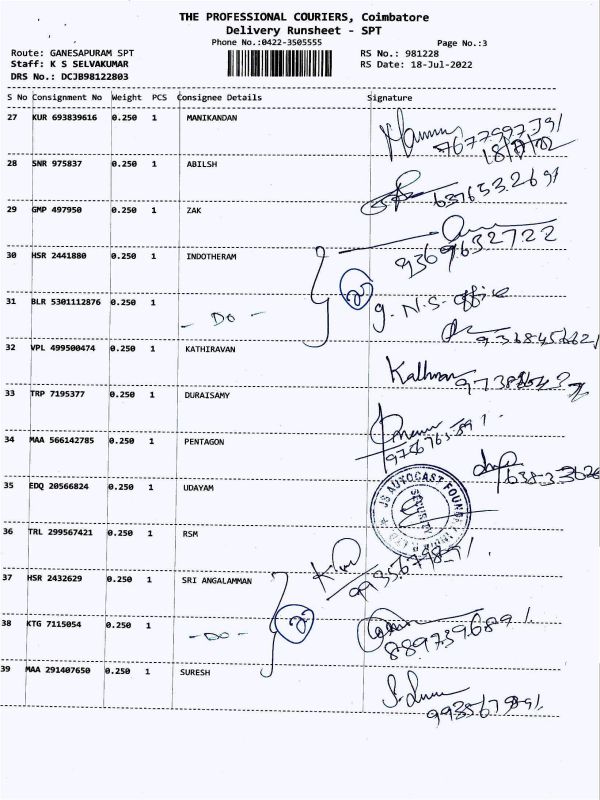 THE PROFESSIONAL COURIERS, Coimbatore
Delivery Runsheet - SPT
Phone No.:0422-3505555
Page No.:3
Route: GANESAPURAM SPT
RS No.: 981228
Staff: K S SELVAKUMAR
RS Date: 18-Jul-2022
DRS No.: DCJB98122803
S No Consignment No Weight PCS Consignee Details Signature
27 KUR 693839616 0.250 1 MANIKANDAN
18/7/22
28 SNR 975837 0.250 1 ABILSH
29 GMP 497950 0.250 1 ZAK
9369632722
30 HSR 2441880 0.250 1 INDOTHERAM
2
31 BLR 5301112876 0.250 1
- Do -
g. N.S. office
32 VPL 499500474 0.250 1 KATHIRAVAN
33 TRP 7195377 0.250 1 DURAISAMY
34 MAA 566142785 0.250 1 PENTAGON
35 EDQ 20566824 0.250 1 UDAYAM
JS AUTOCAST FOUNDRY
SECURITY
36 TRL 299567421 0.250 1 RSM
37 HSR 2432629 0.250 1 SRI ANGALAMMAN
2
38 KTG 7115054 0.250 1
- DO -
39 MAA 291407650 0.250 1 SURESH